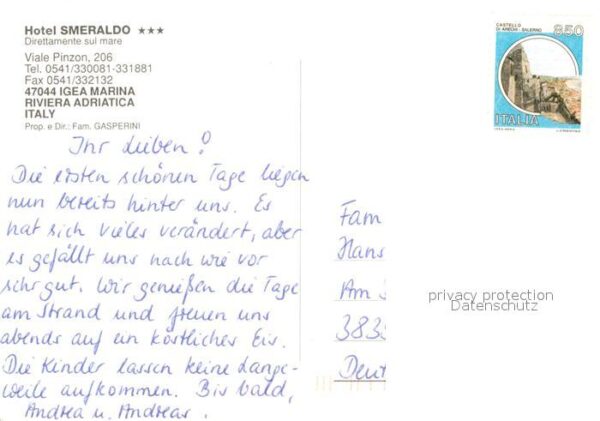 Hotel SMERALDO ★★★
Direttamente sul mare
Viale Pinzon, 206
Tel. 0541/330081-331881
Fax 0541/332132
47044 IGEA MARINA
RIVIERA ADRIATICA
ITALY
Prop. e Dir.: Fam. GASPERINI
CASTELLO
DI ARECHI - SALERNO
850
ITALIA
Ihr Lieben!
Die ersten schönen Tage liegen
nun bereits hinter uns. Es
hat sich vieles verändert, aber
es gefällt uns nach wie vor
sehr gut. Wir genießen die Tage
am Strand und freuen uns
abends auf ein köstliches Eis.
Die Kinder lassen keine Lange-
weile aufkommen. Bis bald,
Andrea u. Andreas.
Fam
Hans
Am
383
Deut
privacy protection
Datenschutz